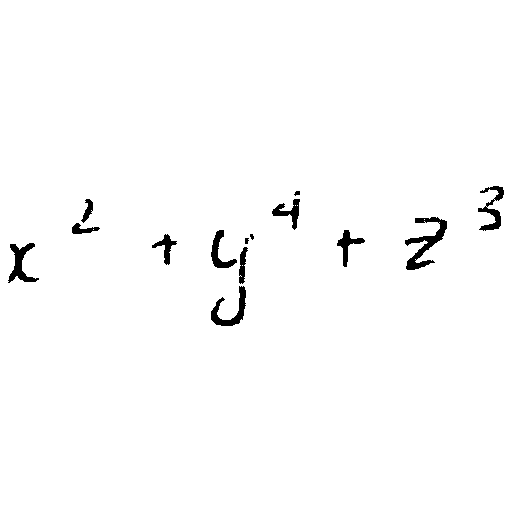 x² + y⁴ + z³